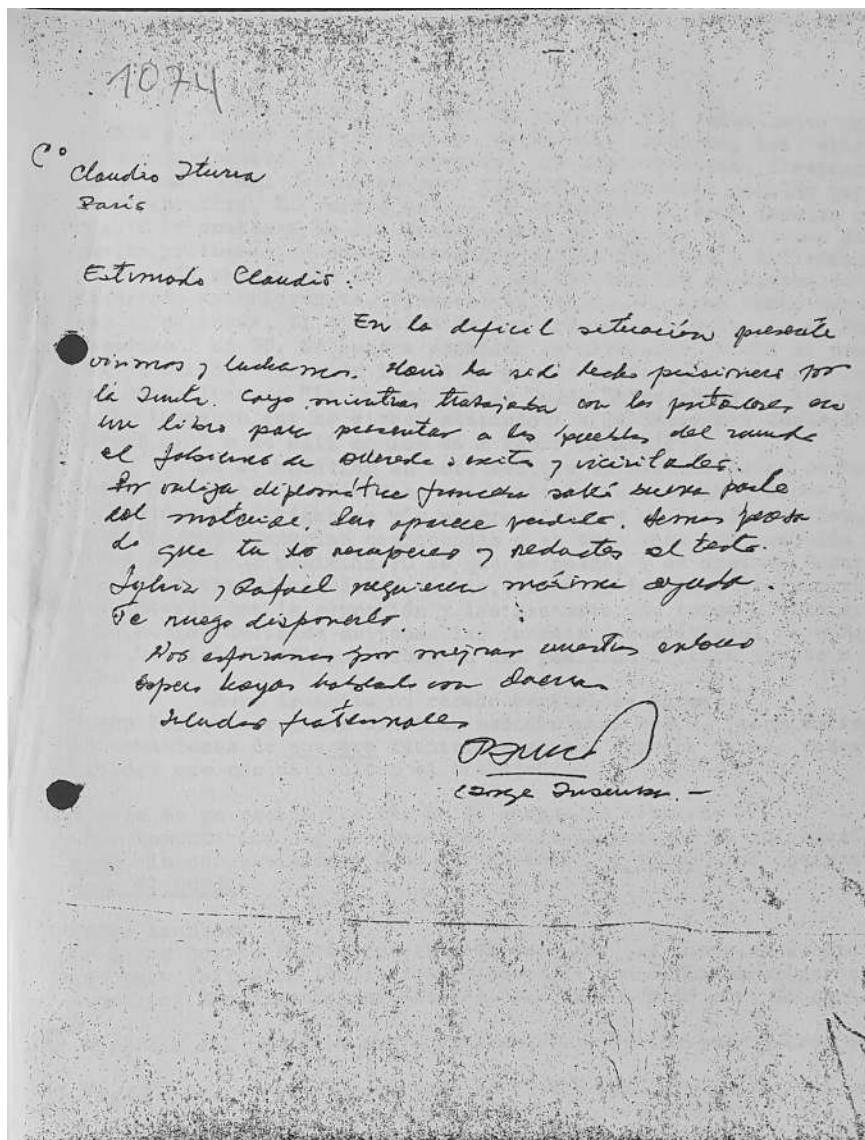 1074
Cº Claudio Iturra
Paris
Estimado Claudio:
En la dificil situación presente
vivimos y luchamos. ha sido hecho prisionero por
la Junta. Cayó mientras trabajaba con los en
un libro para presentar a los pueblos del mundo
el Gobierno de Allende: exitos y vicisitudes.
Por valija diplomática francesa salió buena parte
del material. aparece perdido. Hemos
do que tu lo recuperes y redactes el texto.
Sylvia y Rafael requieren máxima ayuda.
Te ruego disponerlo.
Nos esforzamos por mejorar nuestros enlaces
Espero hayas hablado con
Saludos fraternales
Jorge Insunza.-